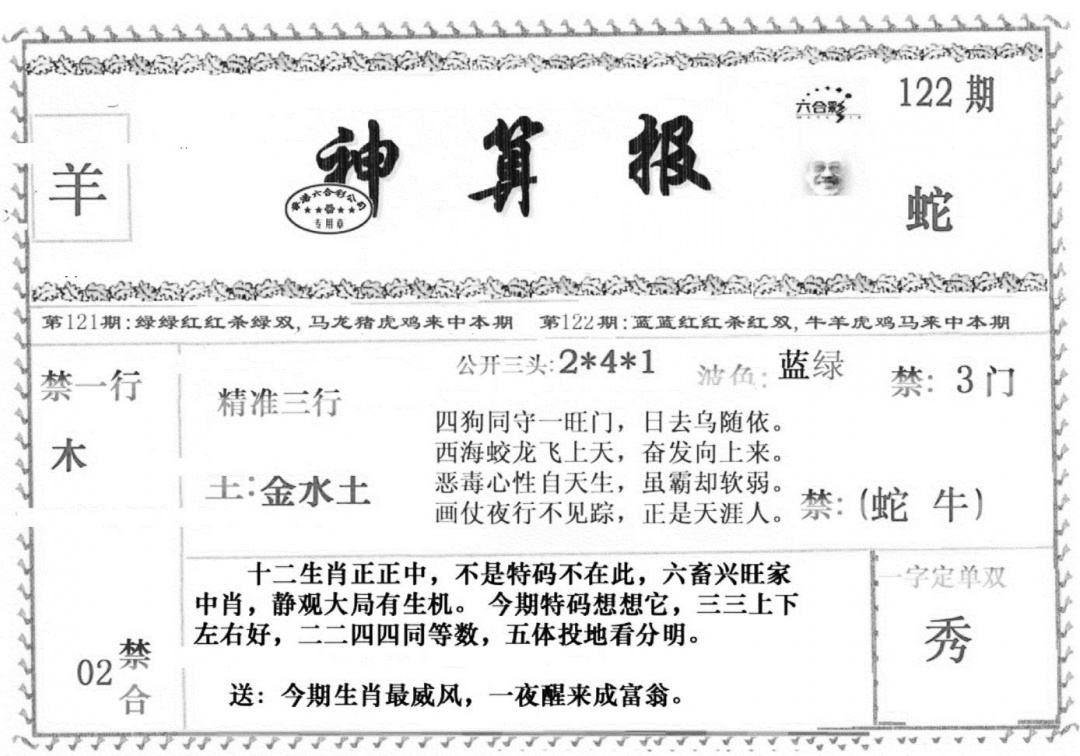 122期
六合彩
神算报
羊
香港六合彩公司
专用章
蛇
第121期:绿绿红红杀绿双,马龙猪虎鸡来中本期 第122期:蓝蓝红红杀红双,牛羊虎鸡马来中本期
禁一行
木
精准三行
土:金水土
公开三头:2*4*1
波色:蓝绿
禁:3门
四狗同守一旺门，日去乌随依。
西海蛟龙飞上天，奋发向上来。
恶毒心性自天生，虽霸却软弱。
画仗夜行不见踪，正是天涯人。
禁:(蛇 牛)
十二生肖正正中，不是特码不在此，六畜兴旺家
中肖，静观大局有生机。 今期特码想想它，三三上下
左右好，二二四四同等数，五体投地看分明。
送：今期生肖最威风，一夜醒来成富翁。
02禁合
一字定单双
秀